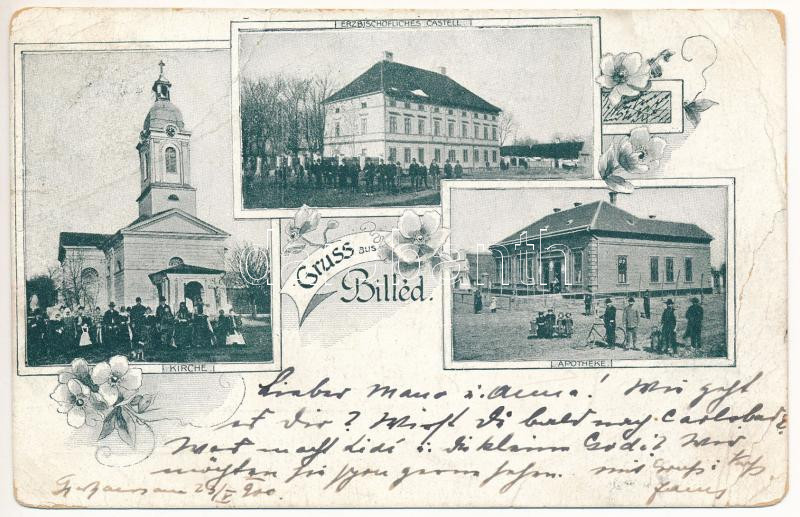 ERZBISCHÖFLICHES CASTELL.
Gruss aus
Billèd.
KIRCHE
APOTHEKE
Lieber Mano u. Anna! Wie geht
es Dir? Wirst Du bald nach Carlsbad?
Was macht Lidi u. die kleine Godi? Wir
möchten sie schon gerne sehen. mit Gruß